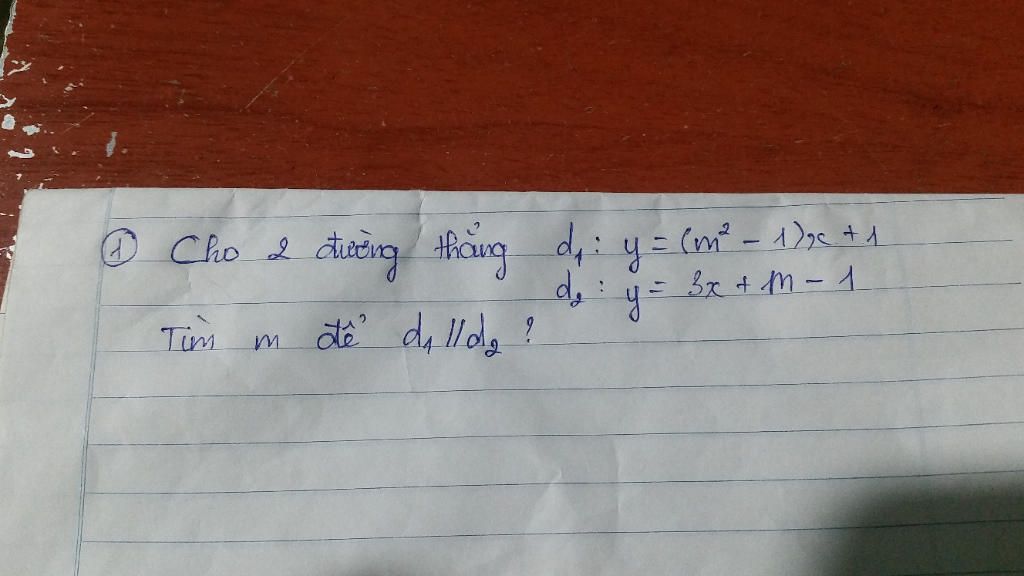 ① Cho 2 đường thẳng d₁ : y = (m² - 1)x + 1
d₂ : y = 3x + m - 1
Tìm m để d₁ // d₂ ?